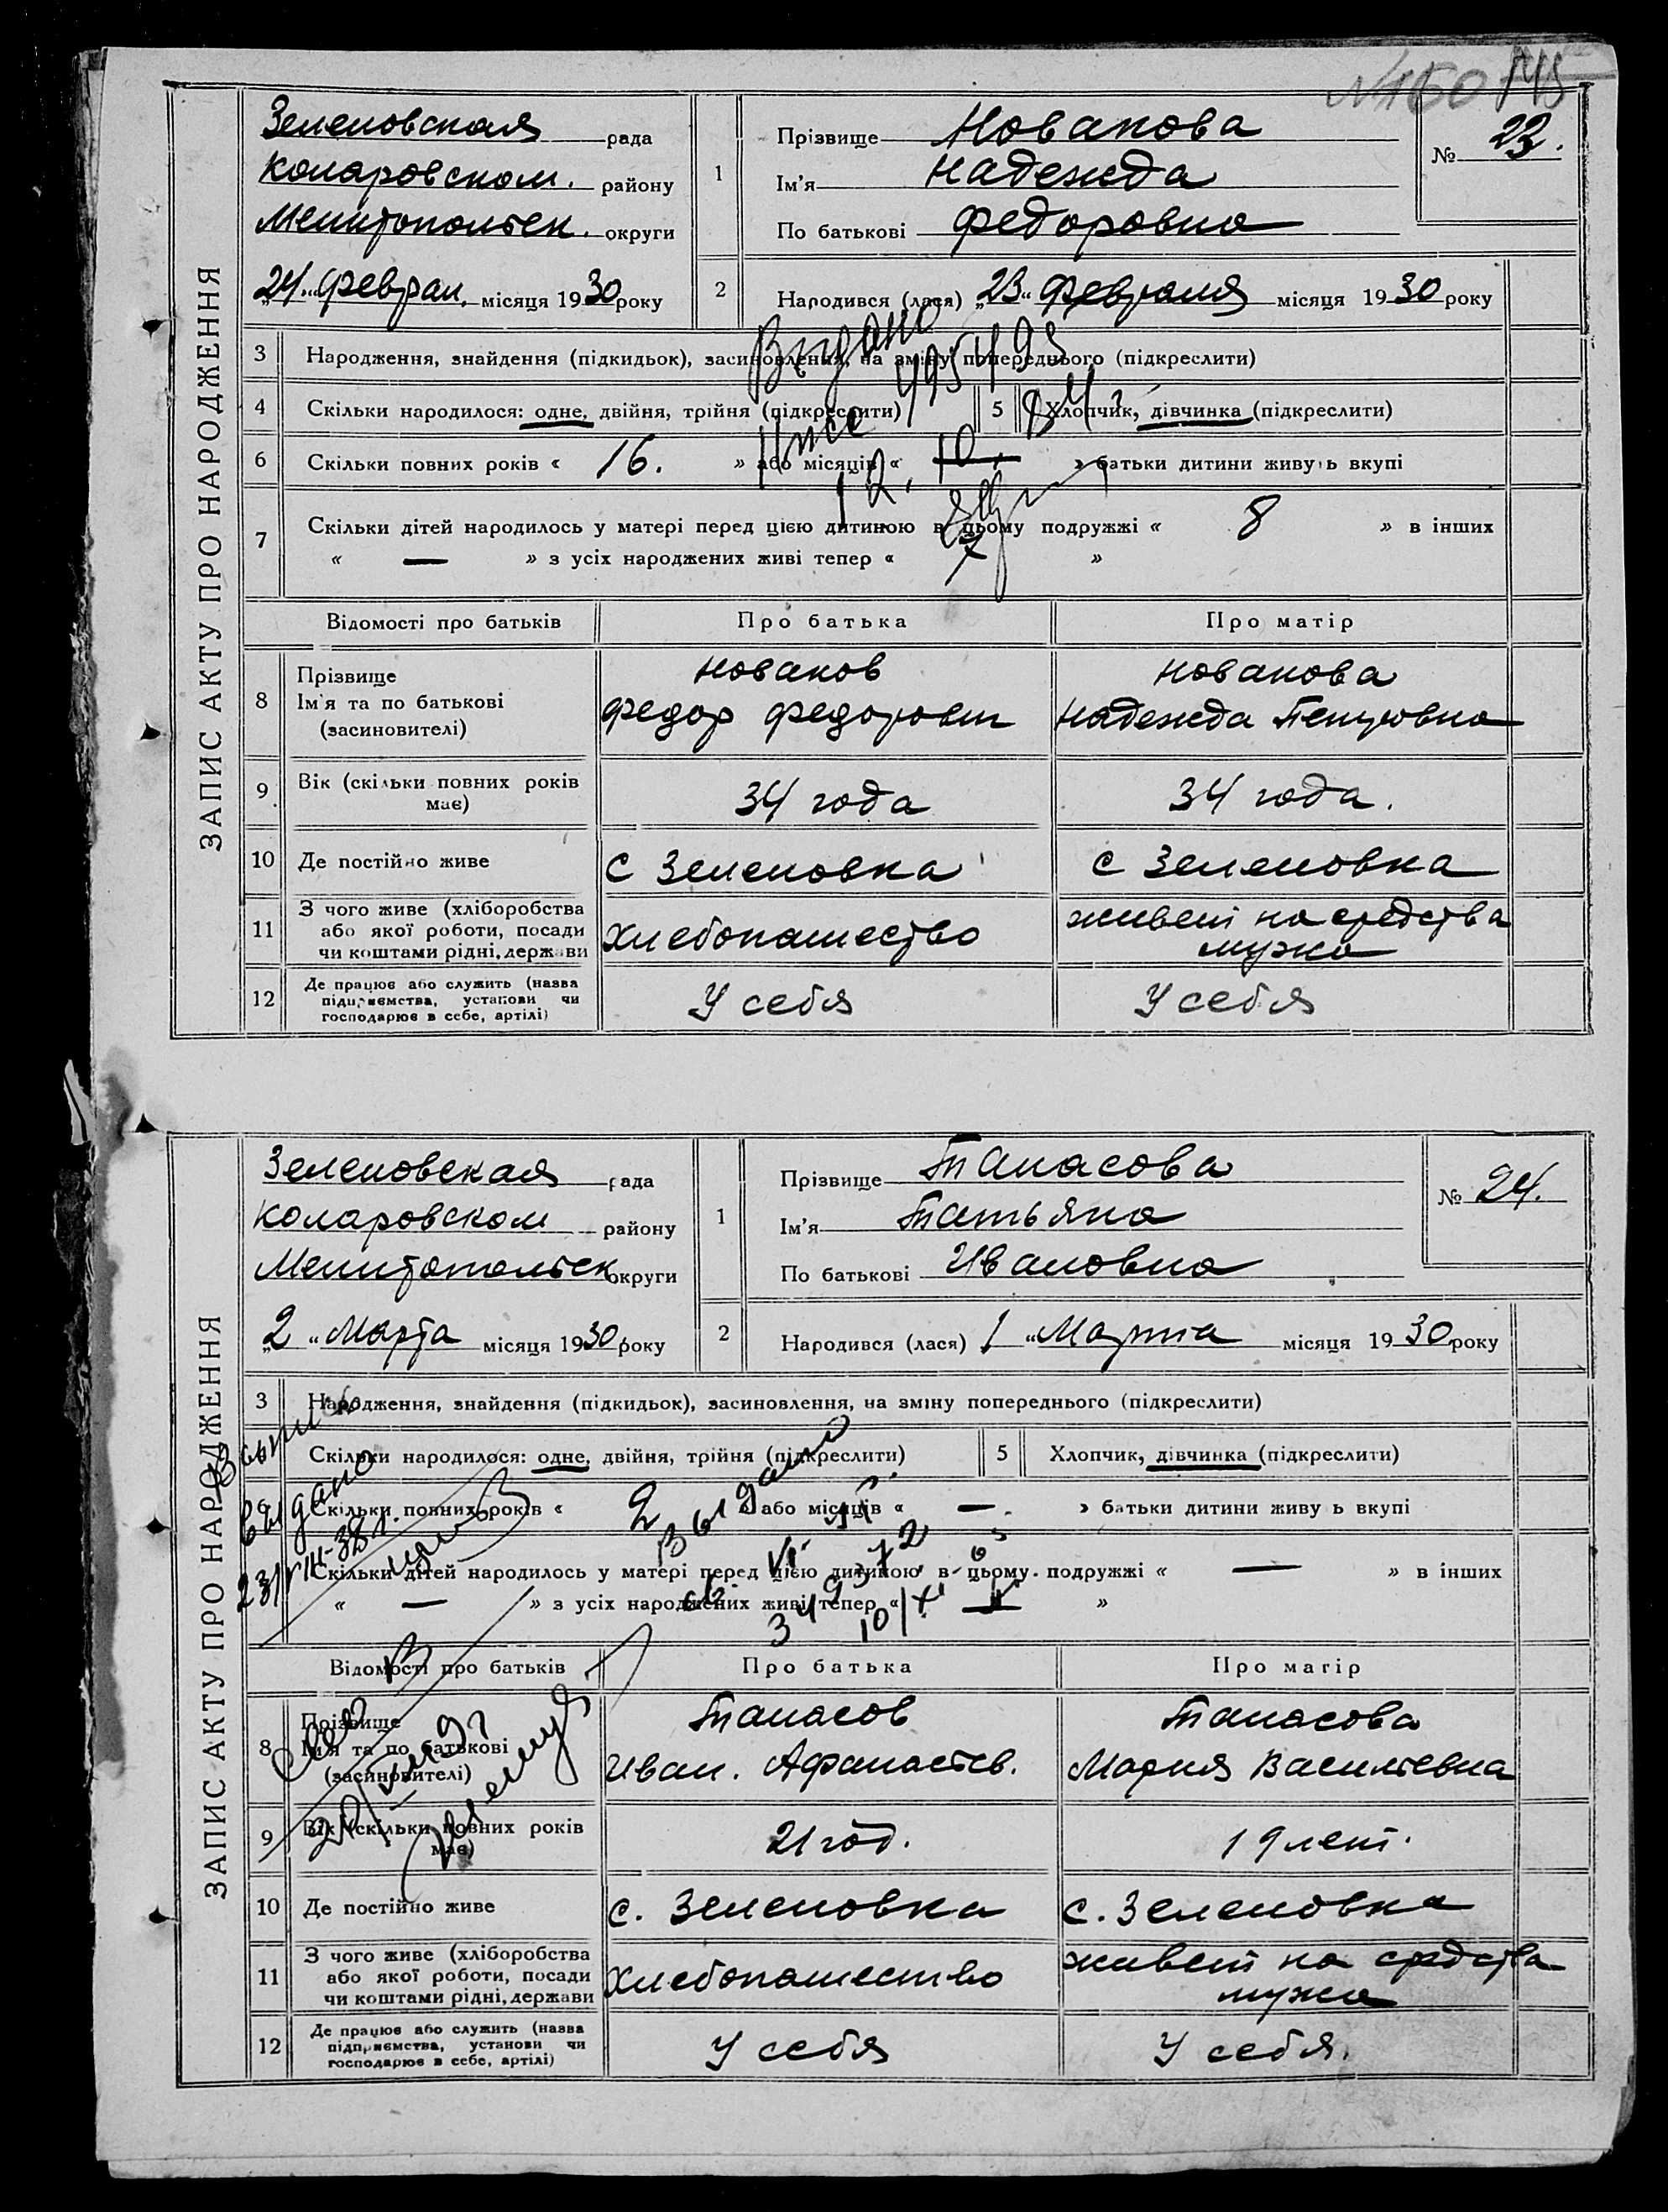 № 150
ЗАПИС АКТУ ПРО НАРОДЖЕННЯ
Зеленовская рада
Коларовском. району
Мелитопольск. округи
„24„ Феврал. місяця 1930 року
1 Прізвище Новакова
Ім'я Надежда
По батькові Федоровна
№ 23.
2 Народився (лася) „23“ Февраля місяця 1930 року
3 Народження, знайдення (підкидьок), засиновлення, на зміну попереднього (підкреслити)
4 Скільки народилося: одне, двійня, трійня (підкреслити)
5 Хлопчик, дівчинка (підкреслити)
6 Скільки повних років « 16. » або місяців « » батьки дитини живуть вкупі
7 Скільки дітей народилось у матері перед цією дитиною в цьому подружжі « 8 » в інших
« — » з усіх народжених живі тепер « »
Видано
Відомості про батьків Про батька Про матір
8 Прізвище
Ім'я та по батькові
(засиновителі)
Новаков
Федор Федорович
Новакова
Надежда Петровна
9 Вік (скільки повних років
має)
34 года
34 года.
10 Де постійно живе
с Зеленовка
с Зеленовка
11 З чого живе (хліборобства
або якої роботи, посади
чи коштами рідні, держави
Хлебопашество
живет на средства
мужа
12 Де працює або служить (назва
підприємства, установи чи
господарює в себе, артілі)
У себя
У себя
ЗАПИС АКТУ ПРО НАРОДЖЕННЯ
Зеленовская рада
Коларовском району
Мелитопольск округи
„2„ Марта місяця 1930 року
1 Прізвище Танасова
Ім'я Татьяна
По батькові Ивановна
№ 24.
2 Народився (лася) 1 „Марта місяця 1930 року
3 Народження, знайдення (підкидьок), засиновлення, на зміну попереднього (підкреслити)
Скільки народилося: одне, двійня, трійня (підкреслити)
5 Хлопчик, дівчинка (підкреслити)
6 Скільки повних років « 2 » або місяців « — » батьки дитини живуть вкупі
Скільки дітей народилось у матері перед цією дитиною в цьому подружжі « — » в інших
« — » з усіх народжених живі тепер « — »
выдано
Выдано
Відомості про батьків Про батька Про матір
8 Прізвище
Ім'я та по батькові
(засиновителі)
Танасов
Иван. Афанасьев.
Танасова
Мария Васильевна
9 Вік (скільки повних років
має)
21 год.
19 лет.
10 Де постійно живе
с. Зеленовка
с. Зеленовка
11 З чого живе (хліборобства
або якої роботи, посади
чи коштами рідні, держави
Хлебопашество
живет на средства
мужа
12 Де працює або служить (назва
підприємства, установи чи
господарює в себе, артілі)
У себя
У себя.